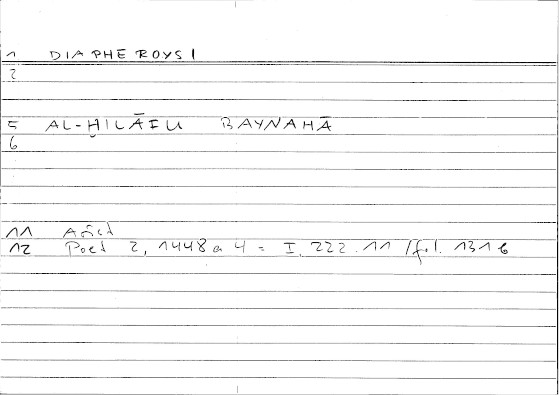 1 DIAPHEROYSI
2
5 AL-ḪILĀFU BAYNAHĀ
6
11 Arist
12 Poet 2, 1448 a 4 = I, 222.11 / fol. 131 b